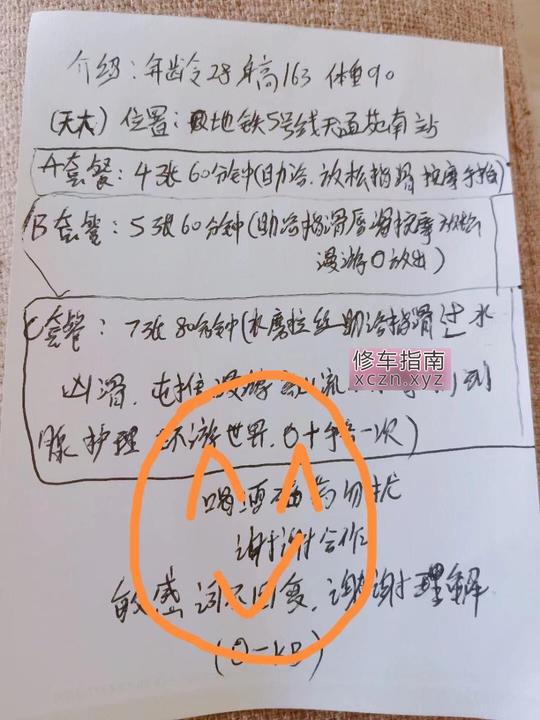 介绍：年龄28身高163 体重90
(天大) 位置：地铁5号线天通苑南站
A套餐：4张60分钟(助浴.放松指滑按摩手
B套餐：5张60分钟(助浴指滑唇滑按摩放松
漫游0放出)
C套餐：7张80分钟(水磨拉丝助浴指滑过水
凶滑
修车指南
xczn.xyz
腺护理 环游世界.0+手 一次)
喝酒 勿扰
谢谢合作
敏感词不回复.谢谢理解